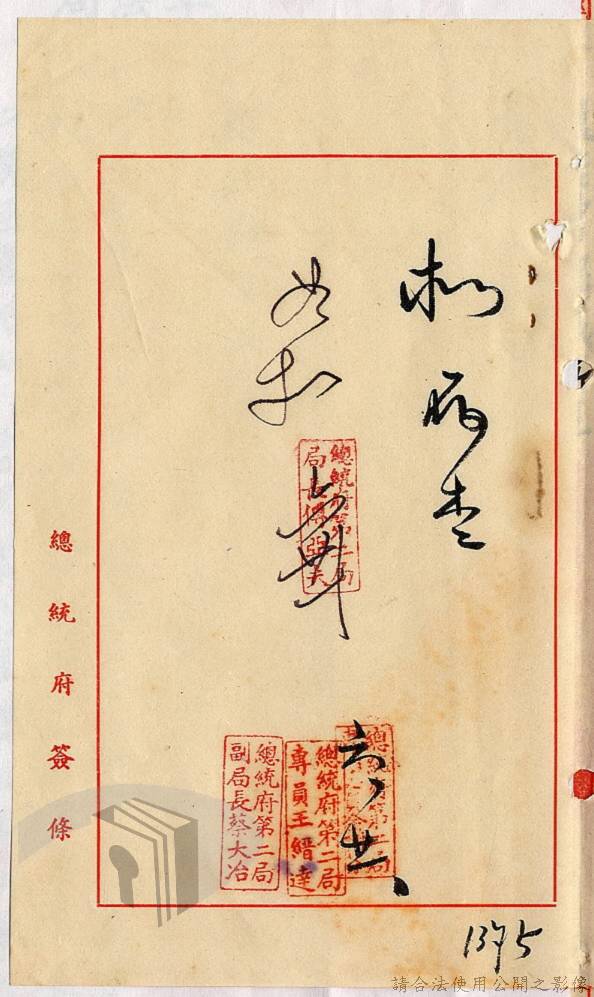 擬存查
如擬
總統府第二局
局長傅亞夫
總統府第二局
專員王縉達
總統府第二局
副局長蔡大冶
總統府簽條
請合法使用公開之影像